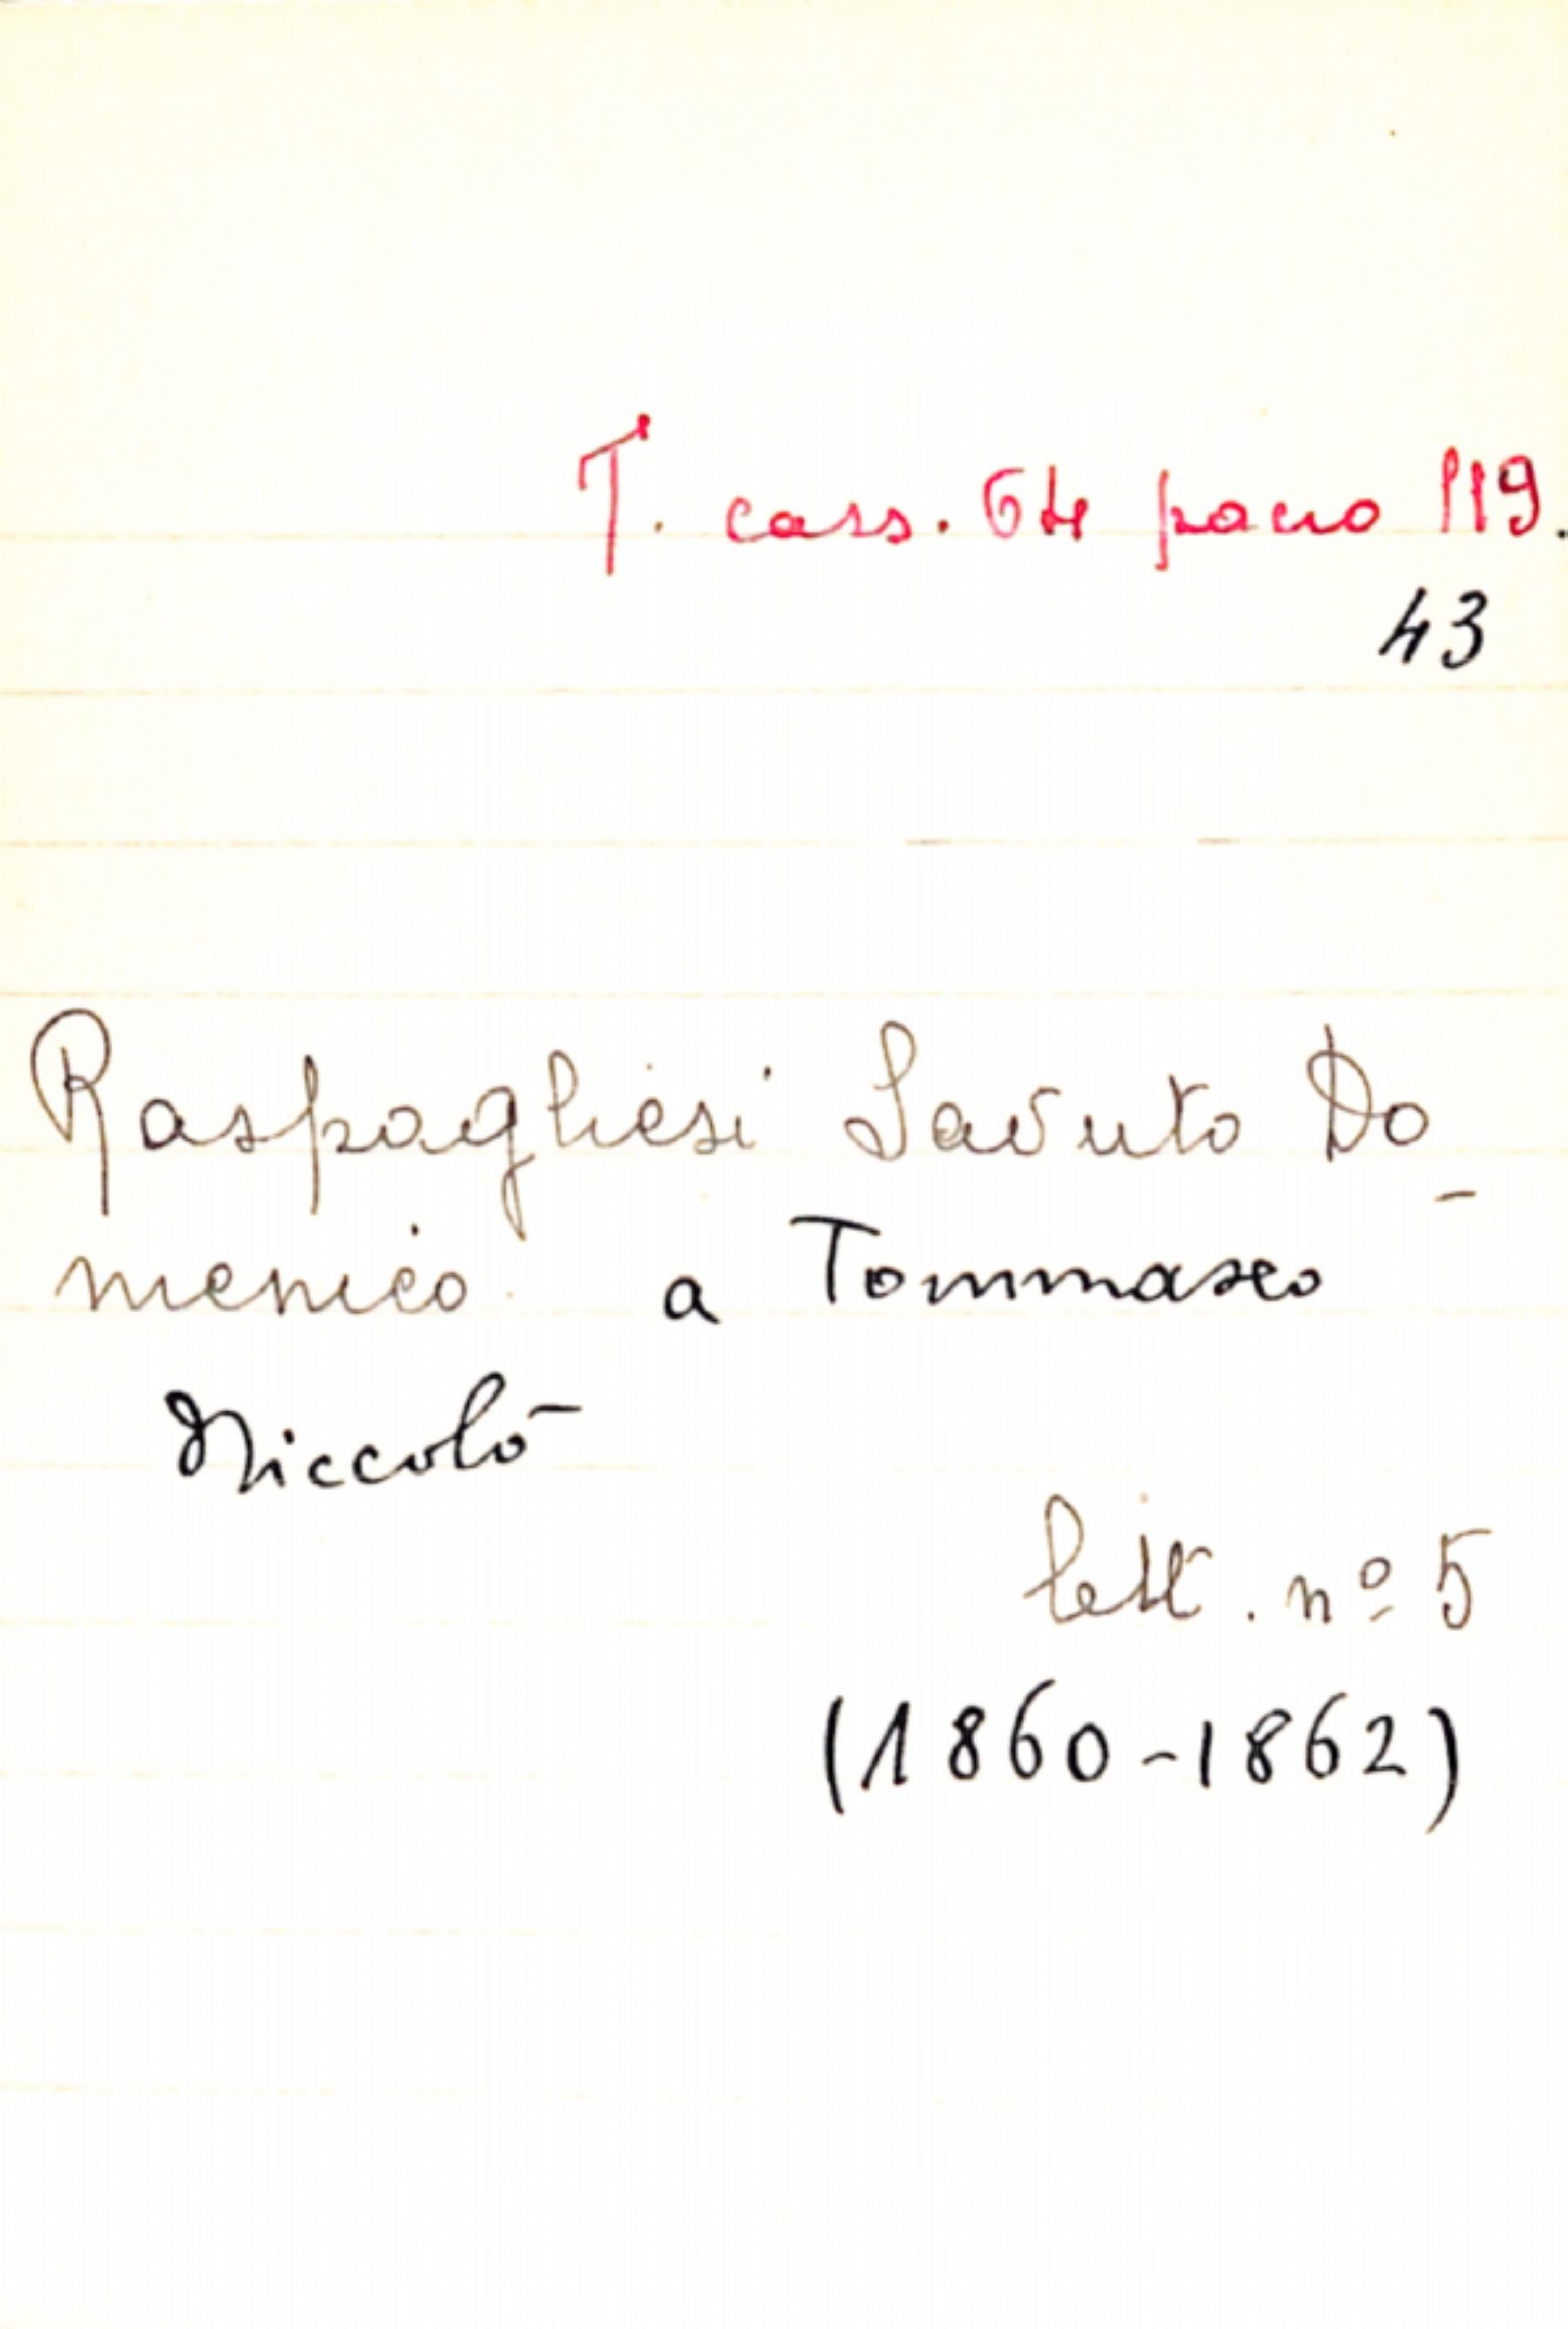 T. cass. 64 pacco 119.
43
Raspagliesi Savuto Do_
menico a Tommaseo
Niccolò
lett. nº 5
(1860-1862)